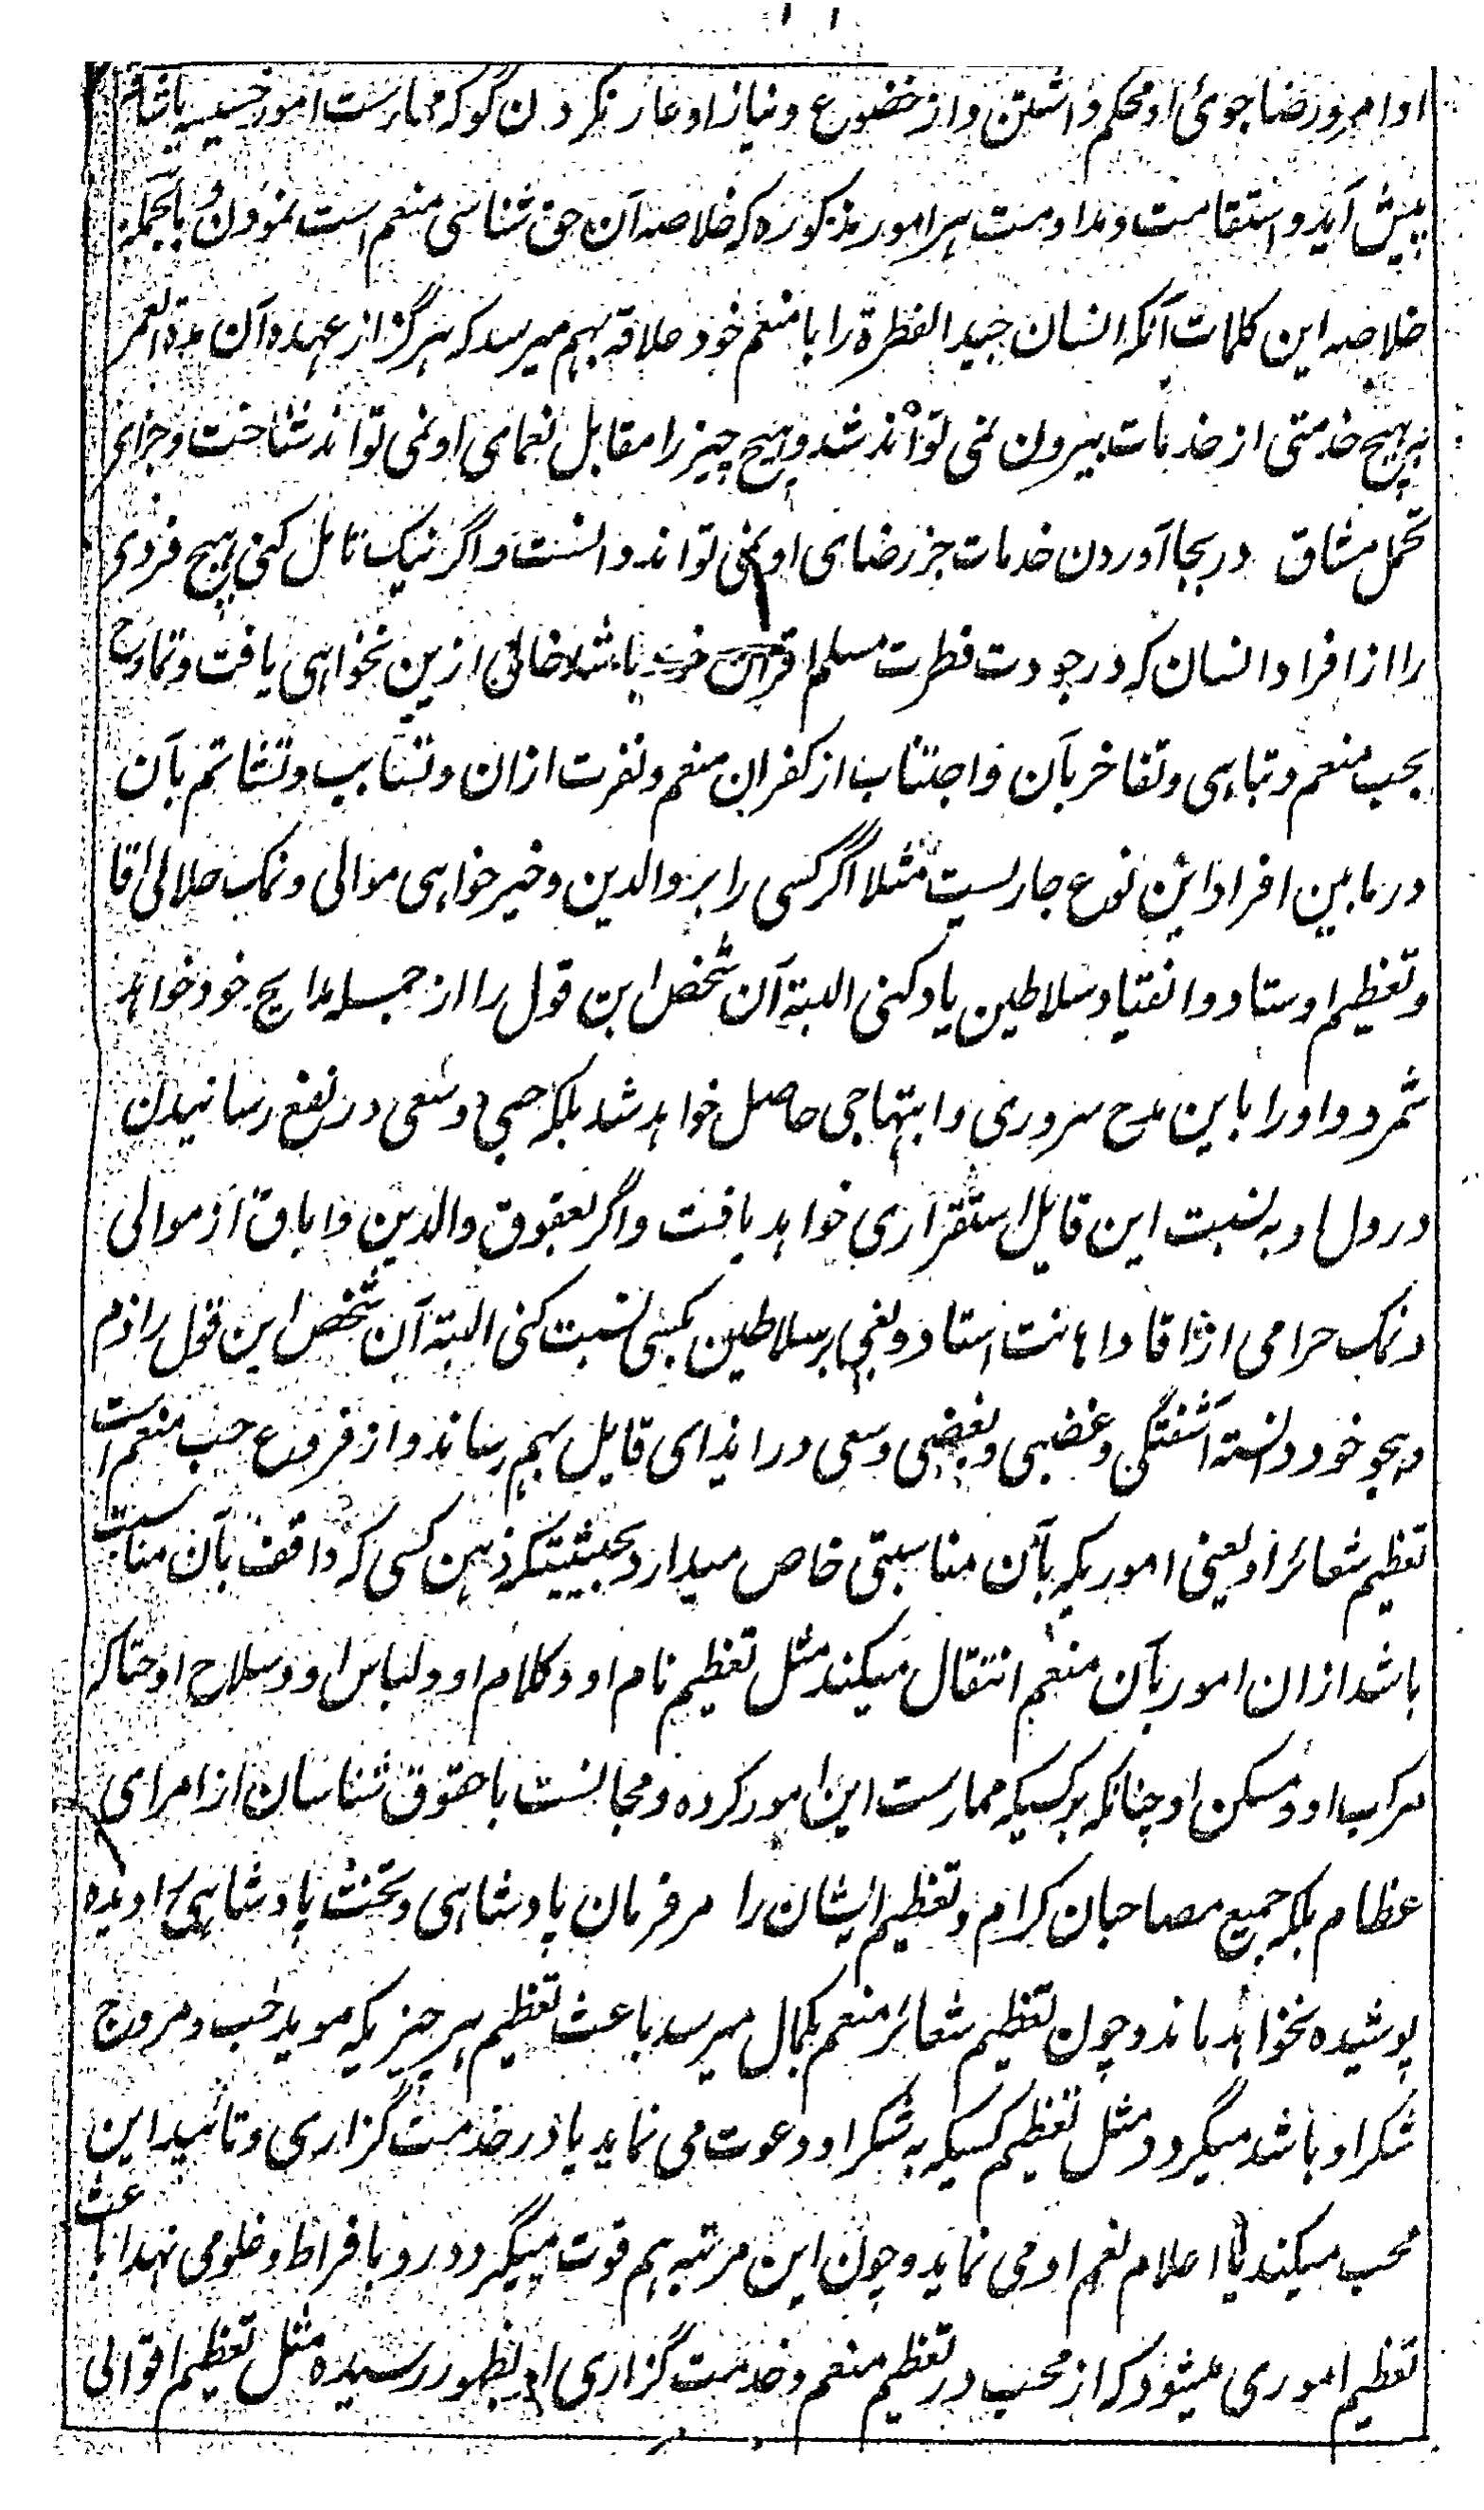 اوامر و رضا جوئ او محکم داشتن و از خضوع و نیاز او عار نکردن گو که ممارست امور خسیسه باشاق
پیش آید و استقامت و مداومت بر امور مذکوره که خلاصه آن حق شناسی منعم است نمودن و بالجمله
خلاصه این کلمات آنکه انسان جید الفطرة را با منعم خود علاقه بهم میرسد که هرگز از عهده آن مدة العمر
به هیچ خدمتی از خدمات بیرون نمی تواند شد و هیچ چیز را مقابل نعمای او نمی تواند شناخت و جزای
تحمل مشاق در بجا آوردن خدمات جز رضای او نمی تواند دانست و اگر نیک تامل کنی هیچ فردی
را از افراد انسان که در جودت فطرت مسلم اقران خود باشد خالی ازین نخواهی یافت و تمادح
بحب منعم و تباهی و تفاخر بآن و اجتناب از کفران منعم و نفرت ازان و تسابب و تشاتم بآن
در مابین افراد این نوع جاریست مثلا اگر کسی را ببر والدین و خیر خواهی موالی و نمک حلالئ آقا
و تعظیم اوستاد و انقیاد سلاطین یاد کنی البتة آن شخص این قول را از جمله مدایح خود خواهد
شمرد و او را باین مدح سروری و ابتهاجی حاصل خواهد شد بلکه حبی و سعی در نفع رسانیدن
در دل او به نسبت این قایل استقراری خواهد یافت و اگر بعقوق والدین و اباق از موالی
و نمک حرامی از آقا و اهانت استاد و بغی بر سلاطین بکسی نسبت کنی البته آن شخص این قول را ذم
و هجو خود دانسته آشفتگی و غضبی و بغضی و سعی در ایذای قایل بهم رساند و از فروع حب منعم است
تعظیم شعائر او یعنی اموریکه بآن مناسبتی خاص میدارد بحیثیتیکه ذهن کسی که واقف بآن مناسبت
باشد ازان امور بآن منعم انتقال میکند مثل تعظیم نام او و کلام او و لباس او و سلاح او حتا که
مرکب او و مسکن او چنانکه بر کسیکه ممارست این امور کرده و مجالست با حقوق شناسان از امرای
عظام بلکه جمیع مصاحبان کرام و تعظیم ایشان را مر فرمان پادشاهی و تخت پادشاهی را دیده
پوشیده نخواهد ماند و چون تعظیم شعائر منعم بکمال میرسد باعث تعظیم هر چیزیکه موید حب و مروج
شکر او باشد میگردد مثل تعظیم کسیکه به شکر او دعوت می نماید یا در خدمت گزاری و تائید این
محب میکند یا اعلام نعم او می نماید و چون این مرتبه هم قوت میگیرد و رو بافراط و غلو می نهد باعث
تعظیم اموری میشود که از محب در تعظیم منعم و خدمت گزاری او بظهور رسیده مثل تعظیم اقوالی